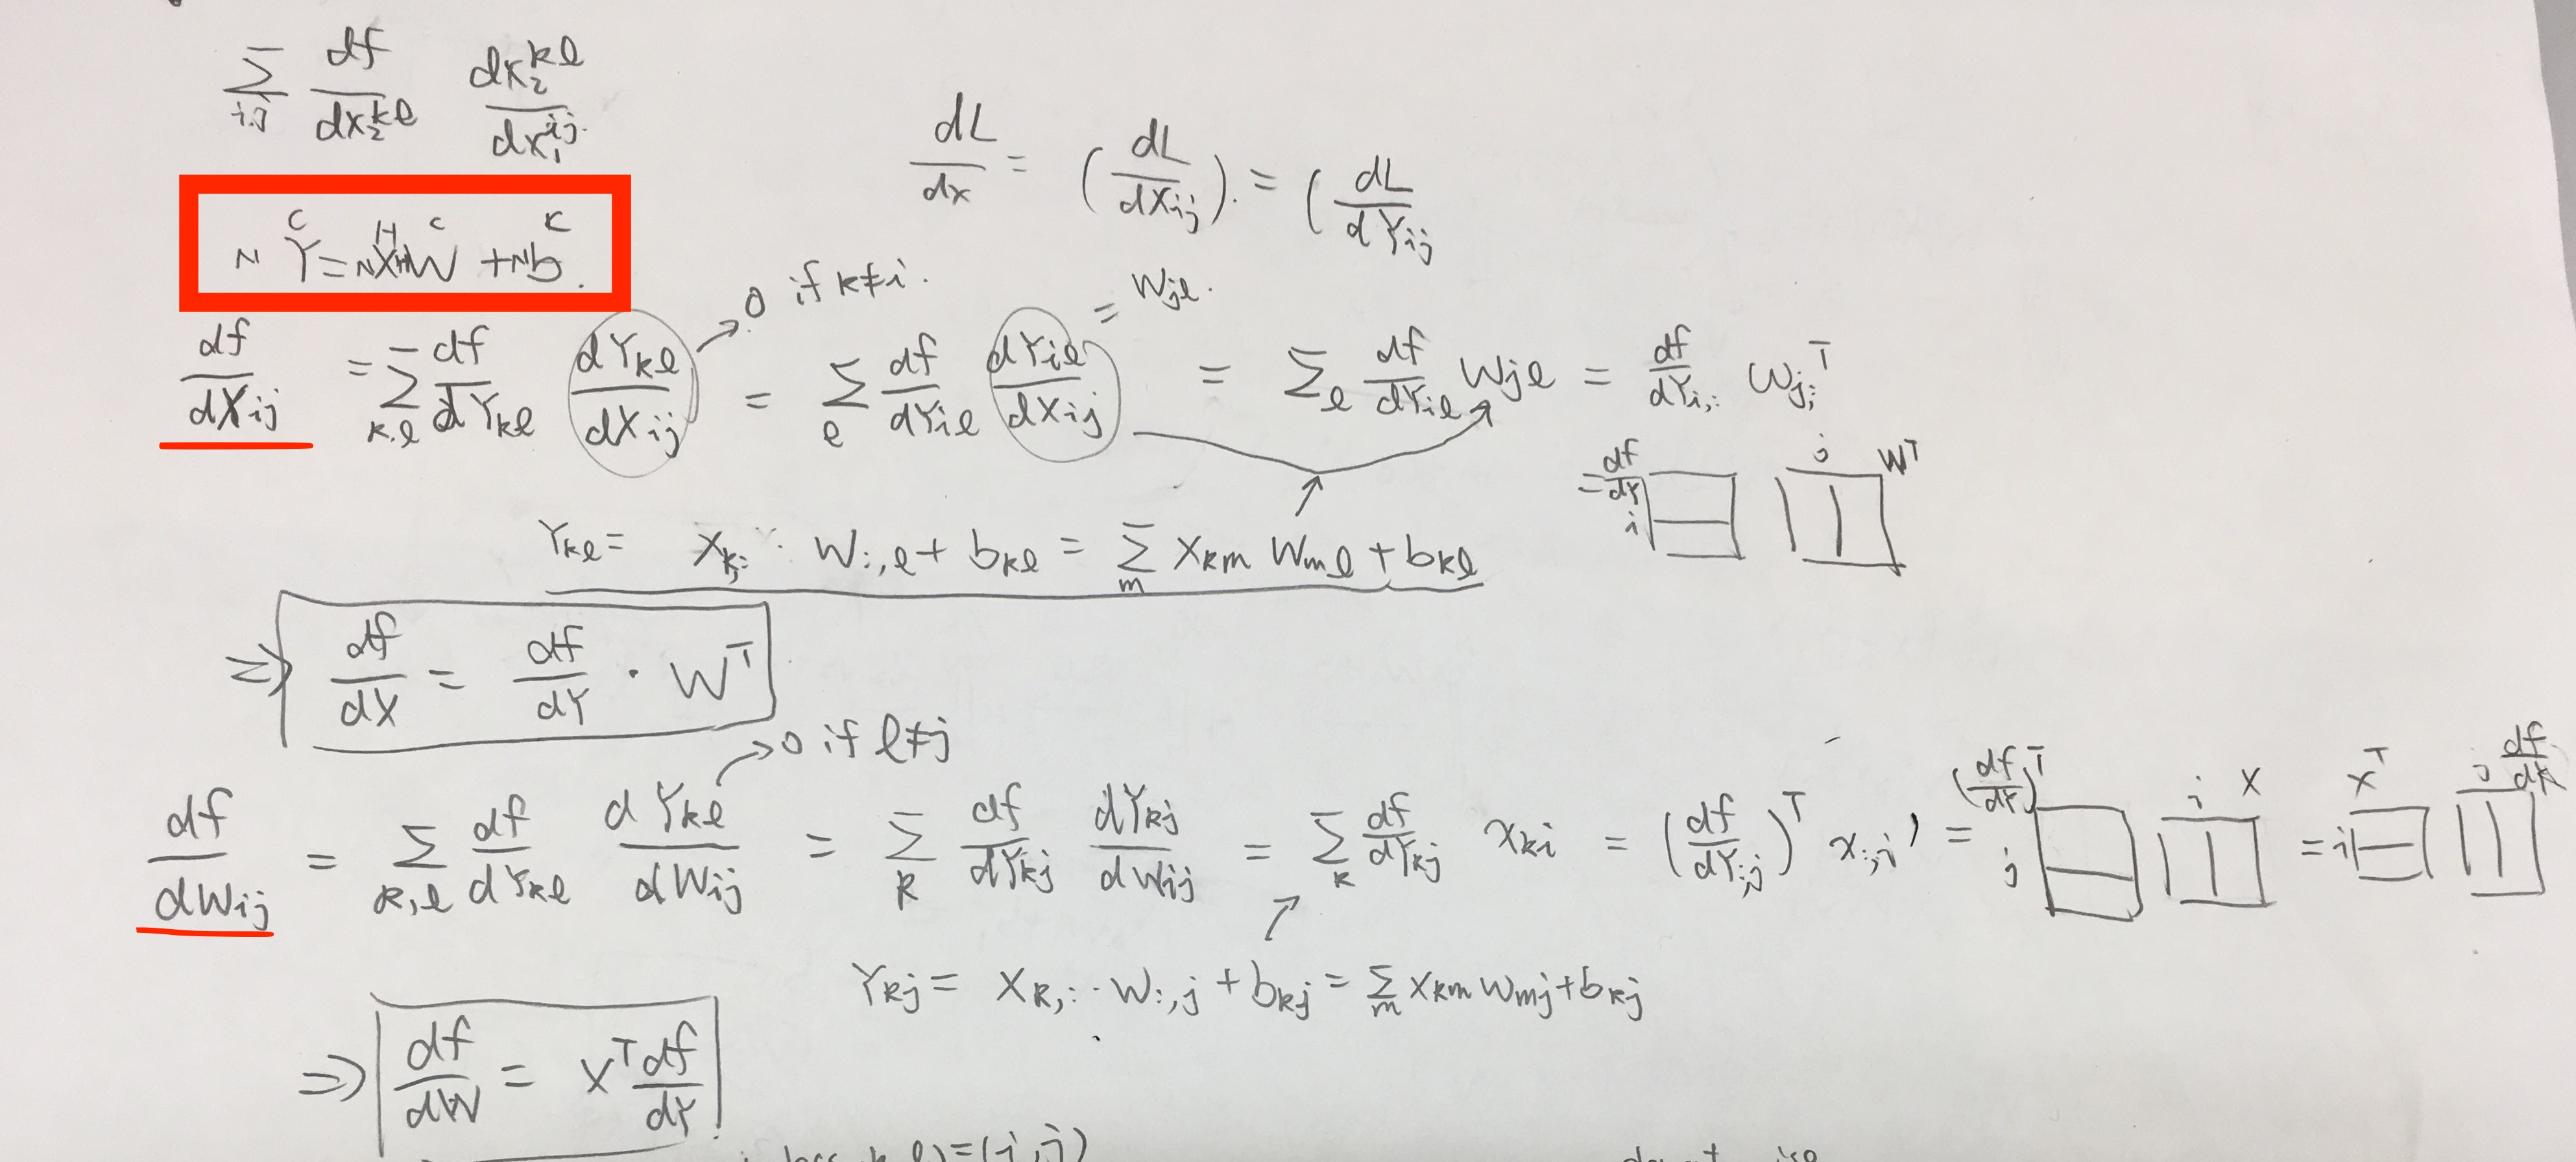 Σ_{i,j} df/dX₂^{kl} dX₂^{kl}/dX₁^{ij}
dL/dx = (dL/dX_{ij}). = (dL/dY_{ij}
C H C K
N Y = N X H W + N b.
→ 0 if k≠i.
= W_{jl}.
df/dX_{ij} = Σ_{k,l} df/dY_{kl} dY_{kl}/dX_{ij} = Σ_l df/dY_{il} dY_{il}/dX_{ij} = Σ_l df/dY_{il} W_{jl} = df/dY_{i,:} W_{j:}^T
= df/dY i j W^T
Y_{kl} = X_{k,:} · W_{:,l} + b_{kl} = Σ_m X_{km} W_{ml} + b_{kl}
⇒ df/dX = df/dY · W^T
→ 0 if l≠j
df/dW_{ij} = Σ_{k,l} df/dY_{kl} dY_{kl}/dW_{ij} = Σ_k df/dY_{kj} dY_{kj}/dW_{ij} = Σ_k df/dY_{kj} x_{ki} = (df/dY_{:,j})^T x_{:,i} = (df/dY)^T j i X = X^T i j df/dY
Y_{kj} = X_{k,:} · W_{:,j} + b_{kj} = Σ_m X_{km} W_{mj} + b_{kj}
⇒ df/dW = X^T df/dY
l)=(i,j)